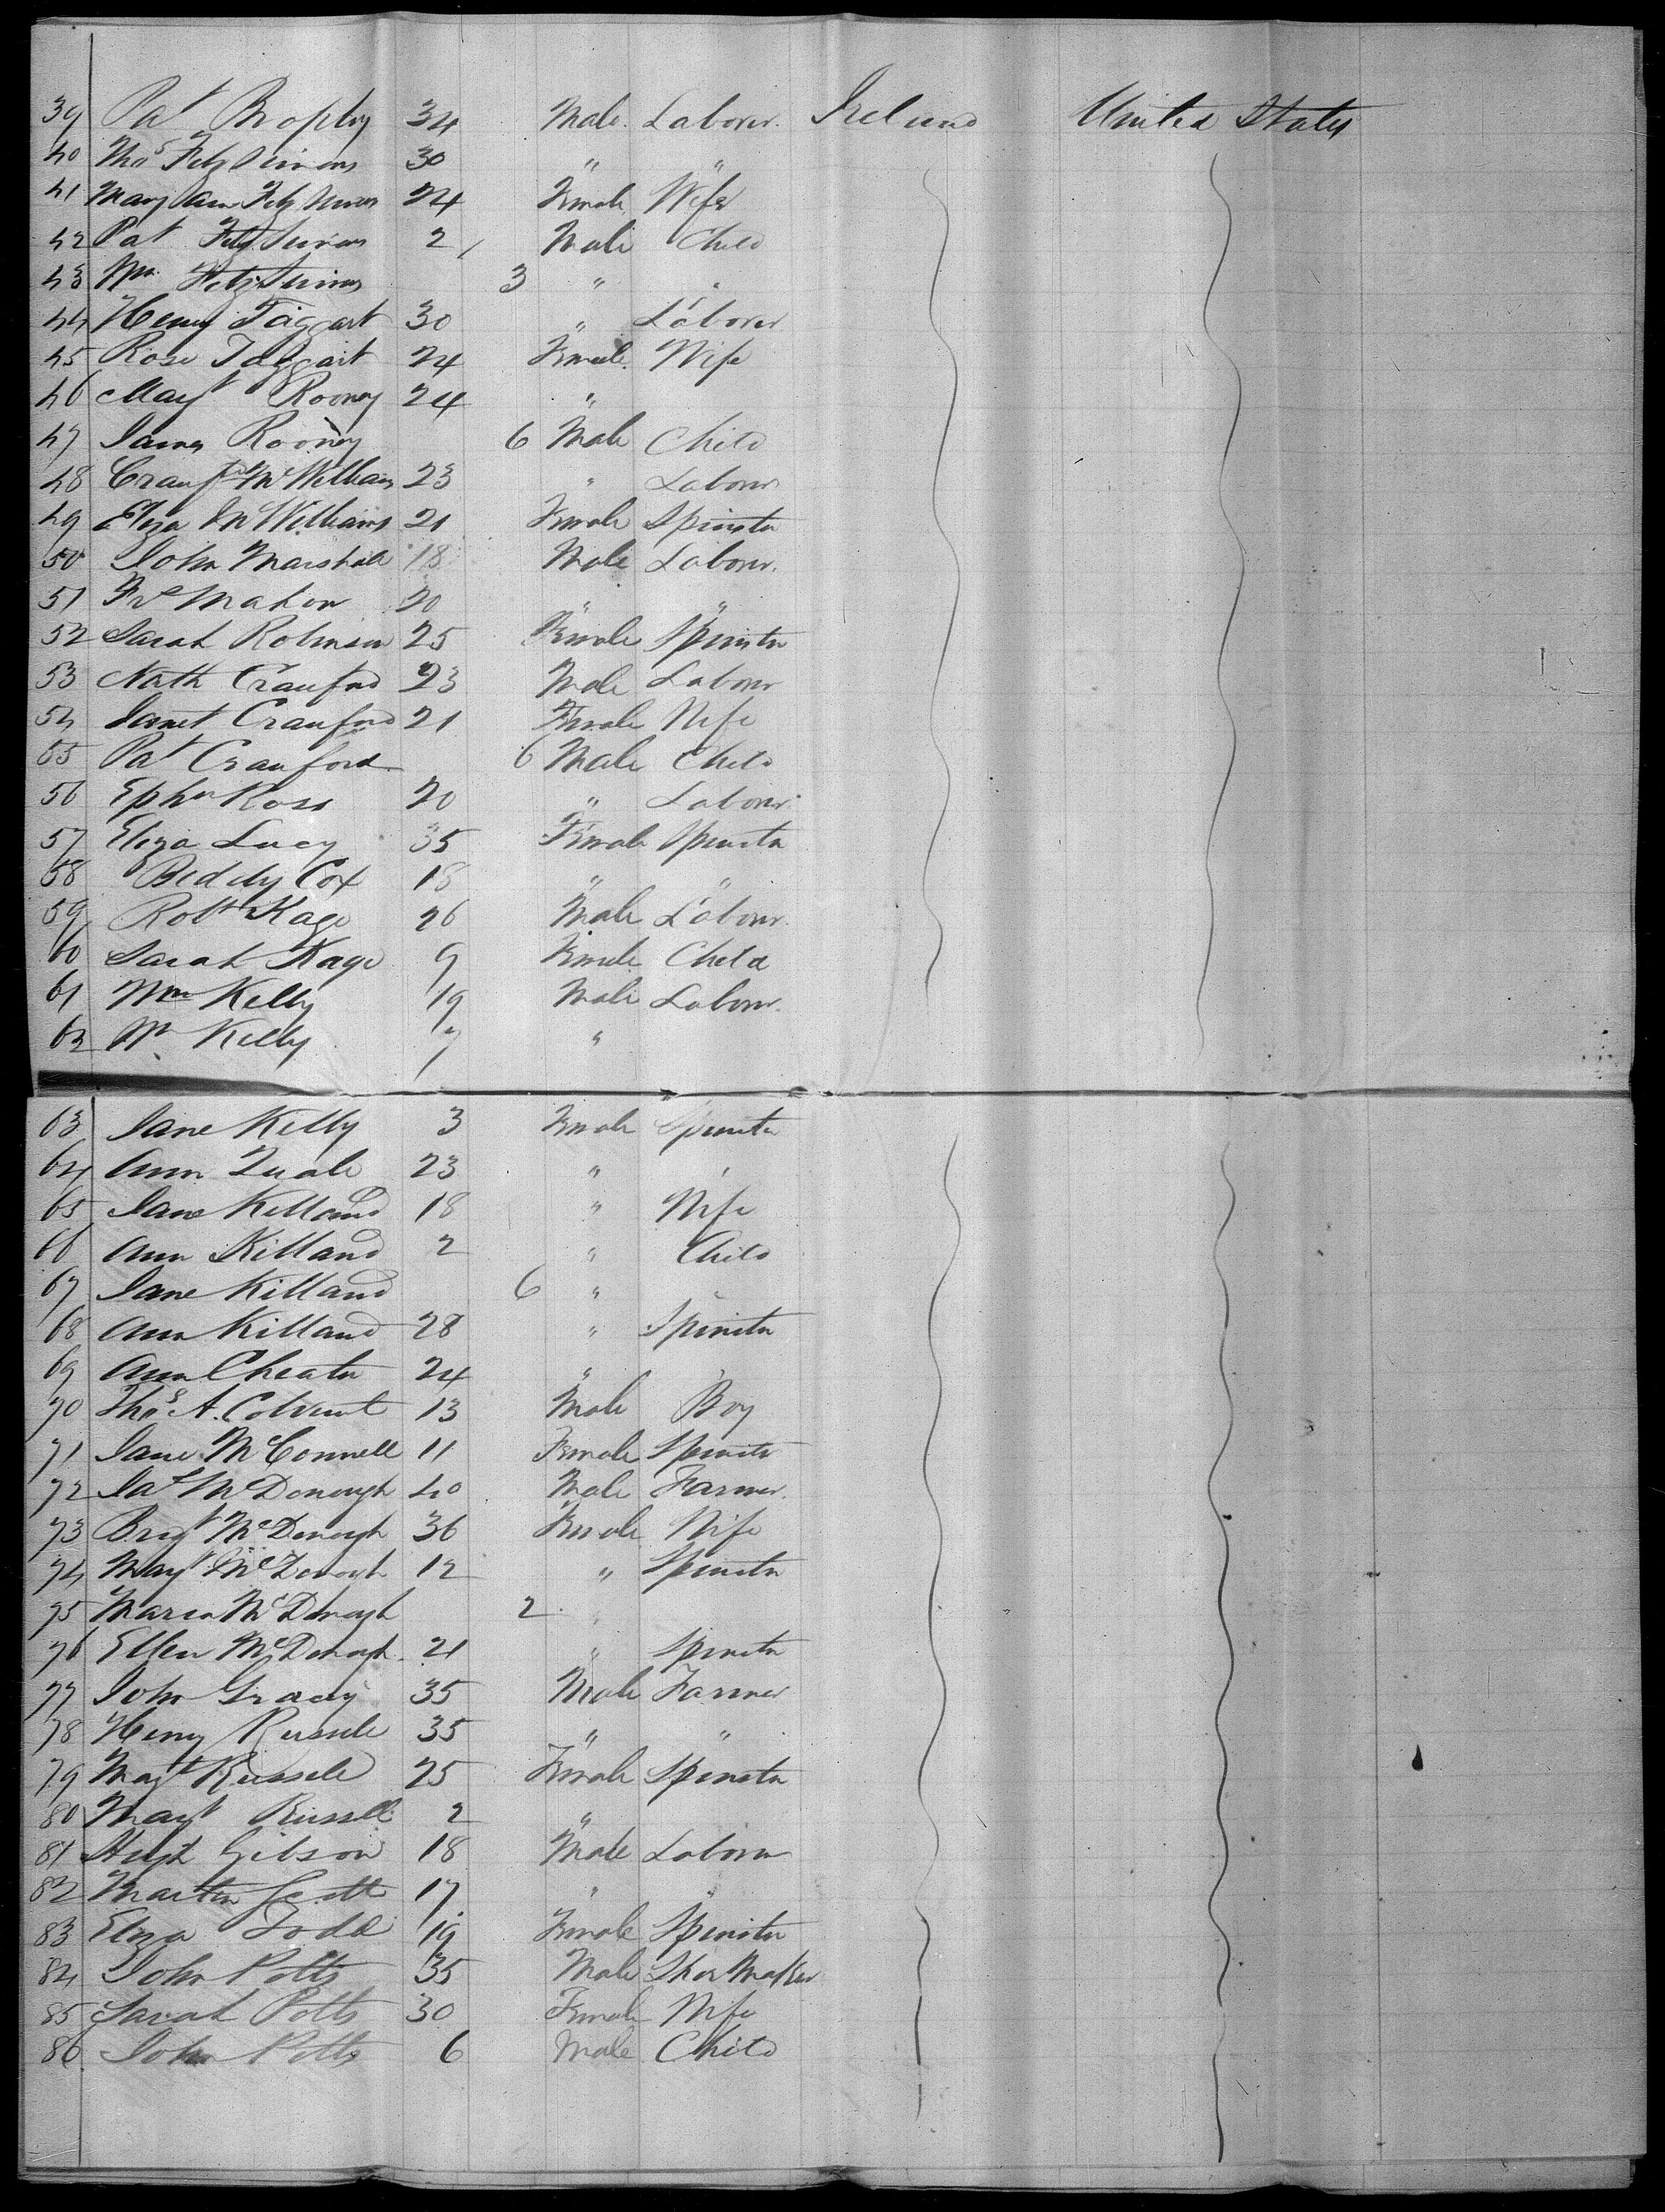 39 Pat Brophy 34 Male Laborer Ireland United States
40 Thos FitzSimons 30 " "
41 Mary Ann FitzSimons 24 Female Wife
42 Pat FitzSimons 2 Male Child
43 Wm FitzSimons 3 " "
44 Henry Taggart 30 " Laborer
45 Rose Taggart 24 Female Wife
46 Mayt Rooney 24 "
47 James Rooney 6 Male Child
48 McWilliams 23 " Laborer
49 Eliza McWilliams 21 Female Spinster
50 John Marshall 18 Male Laborer
51 Mahon 20 " "
52 Sarah Robinson 25 Female Spinster
53 Nath Crauford 23 Male Laborer
54 Janet Crauford 21 Female Wife
55 Pat Crauford 6 Male Child
56 Ephm Ross 20 " Laborer
57 Eliza Lucy 35 Female Spinster
58 Biddy Cox 18 " "
59 Robt Kage 26 Male Laborer
60 Sarah Kage 9 Female Child
61 Wm Kelly 19 Male Laborer
62 Kelly 7 "
63 Jane Kelly 3 Female Spinster
64 Ann Quale 23 " "
65 Jane Killand 18 " Wife
66 Ann Killand 2 " Child
67 Jane Killand 6 "
68 Ann Killand 28 " Spinster
69 Ann Cheater 24 "
70 Thos A. 13 Male Boy
71 Jane McConnell 11 Female Spinster
72 McDonough 40 Male Farmer
73 Brigt McDonough 36 Female Wife
74 Mayt McDonough 12 " Spinster
75 Maria McDonough 2
76 Ellen McDonough 21 " Spinster
77 John Gracey 35 Male Farmer
78 Henry Russell 35 " "
79 Mayt Russell 25 Female Spinster
80 Mayt Russell 2 "
81 Hugh Gibson 18 Male Laborer
82 Martin Scott 17 " "
83 Eliza Todd 19 Female Spinster
84 John Potts 35 Male Shoe Maker
85 Sarah Potts 30 Female Wife
86 John Potts 6 Male Child